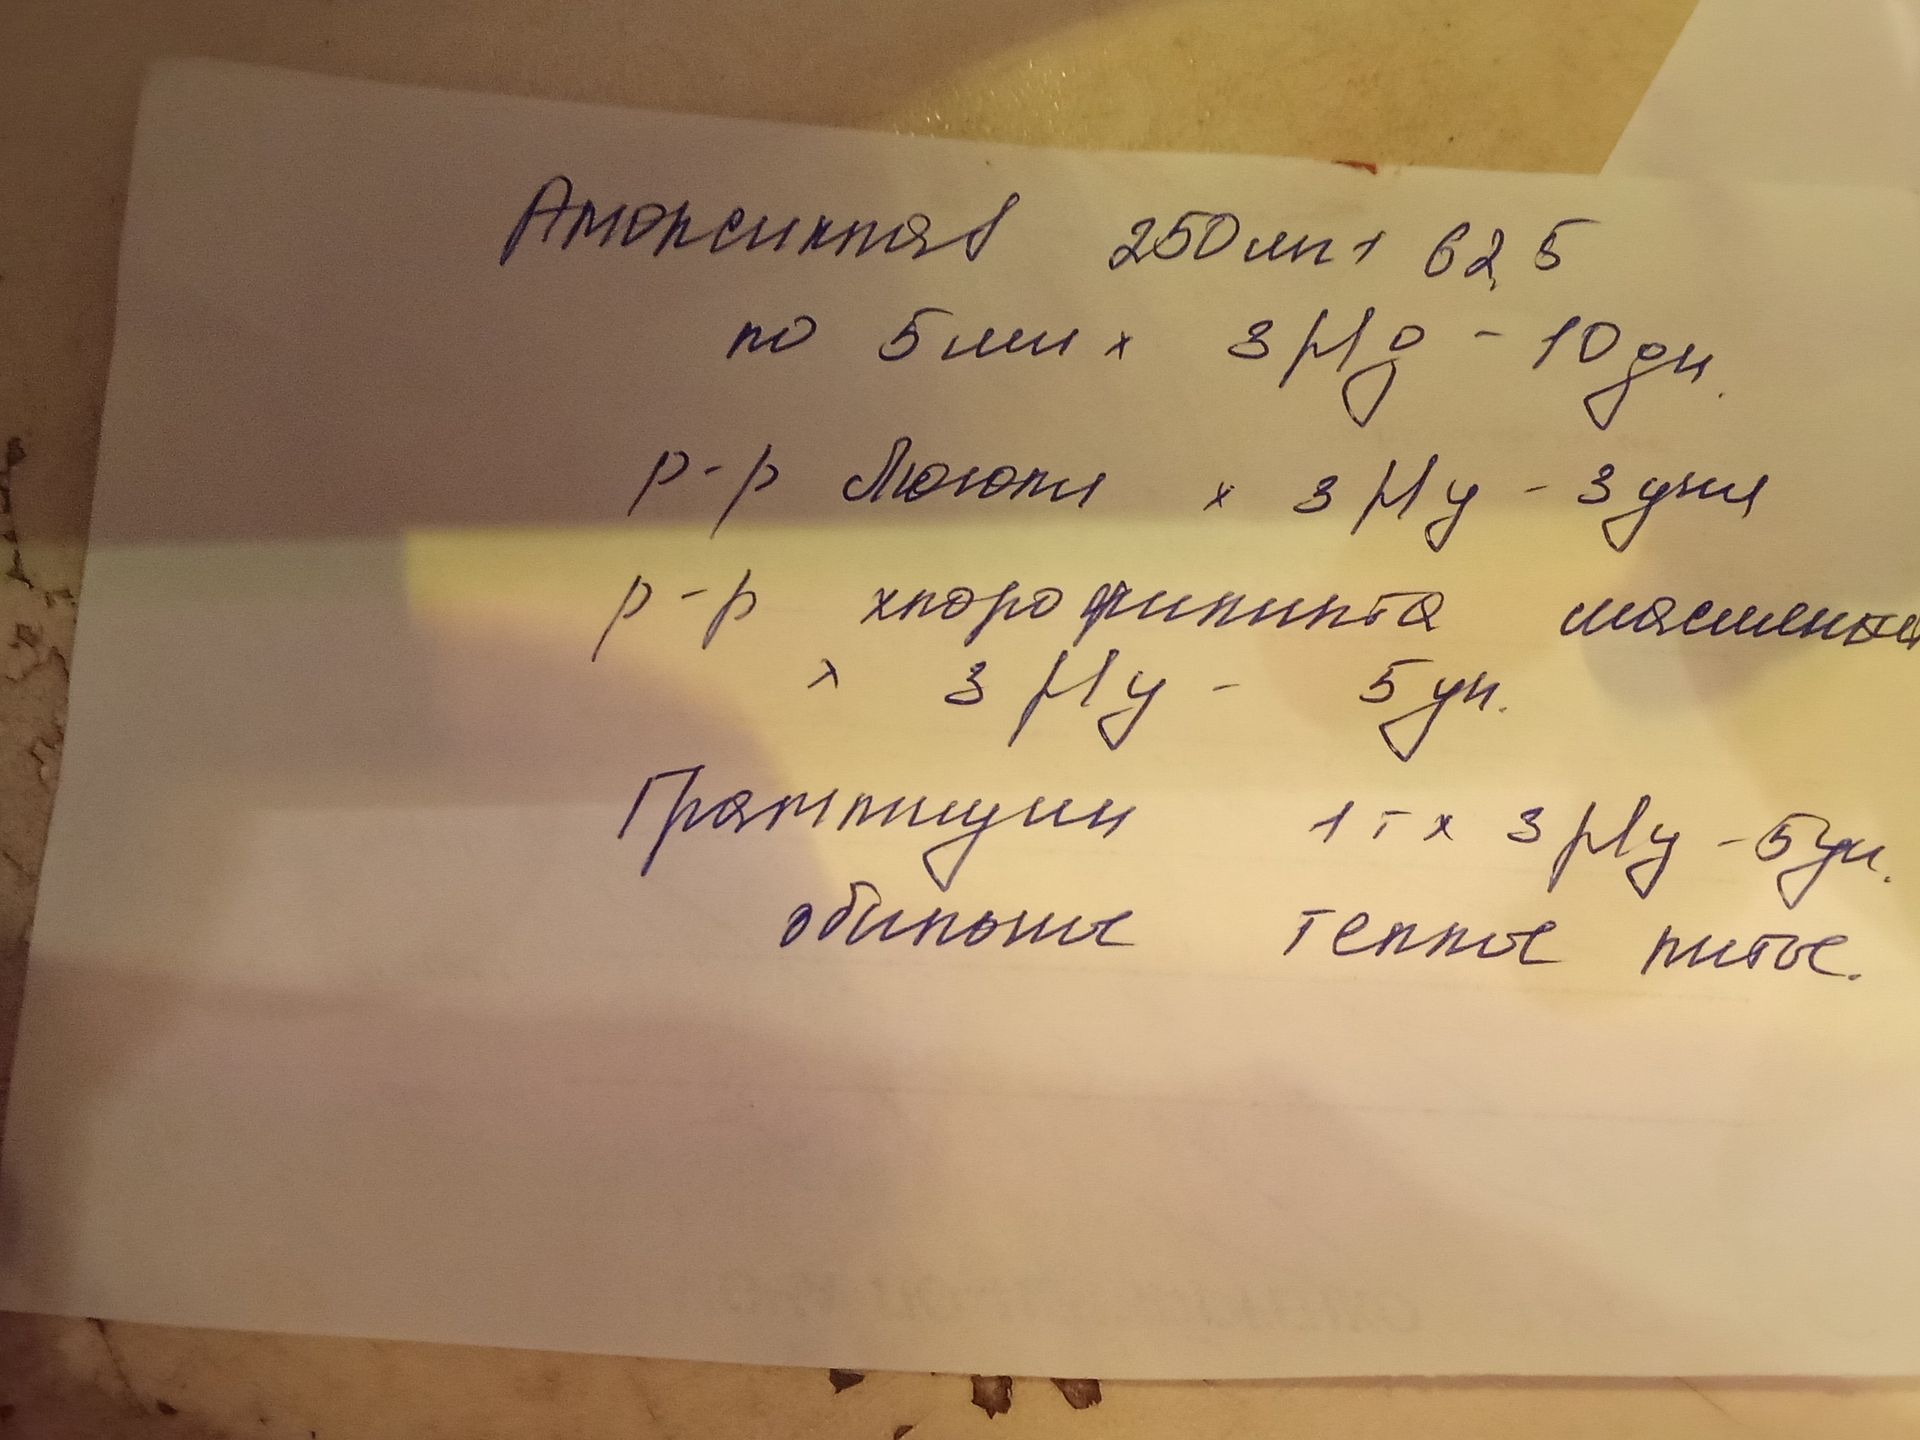 Амоксиклав 250 мг + 62,5
по 5 мл х 3 р/д - 10 дн.
р-р Люголя х 3 р/д - 3 дня
р-р хлорофиллипта масляный
х 3 р/д - 5 дн.
Граммидин 1 т х 3 р/д - 5 дн.
обильное теплое питье.